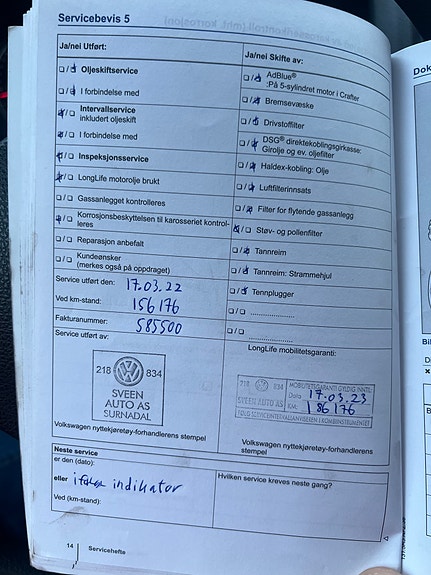 Servicebevis 5
Ja/nei Utført:
Ja/nei Skifte av:
/ Oljeskiftservice
/ I forbindelse med
/ Intervallservice
inkludert oljeskift
/ I forbindelse med
/ Inspeksjonsservice
/ LongLife motorolje brukt
/ Gassanlegget kontrolleres
/ Korrosjonsbeskyttelsen til karosseriet kontrol-
leres
/ Reparasjon anbefalt
/ Kundeønsker
(merkes også på oppdraget)
/ AdBlue®
:På 5-sylindret motor i Crafter
/ Bremsevæske
/ Drivstoffilter
/ DSG® direktekoblingsgirkasse:
Girolje og ev. oljefilter
/ Haldex-kobling: Olje
/ Luftfilterinnsats
/ Filter for flytende gassanlegg
/ Støv- og pollenfilter
/ Tannreim
/ Tannreim: Strammehjul
/ Tennplugger
/ ....................
/ ....................
Service utført den: 17.03.22
Ved km-stand: 156176
Fakturanummer: 585500
Service utført av:
218 834
SVEEN
AUTO AS
SURNADAL
Volkswagen nyttekjøretøy-forhandlerens
stempel
LongLife mobilitetsgaranti:
218 834
SVEEN
AUTO AS
SURNADAL
MOBILITETSGARANTI GYLDIG INNTIL
Dato 17.03.23
KM: 186176
FØLG SERVICEINTERVALLANVISEREN I KOMBIINSTRUMENTET
Volkswagen nyttekjøretøy-forhandlerens
stempel
Neste service
er den (dato):
eller ifølge indikator
Ved (km-stand):
Hvilken service kreves neste gang?
14 Servicehefte
Dok
Bil